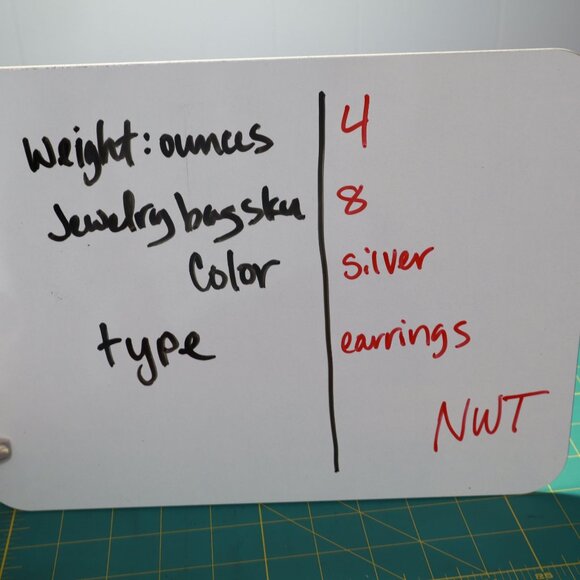 Weight: ounces 4
Jewelry bag sku 8
Color silver
type earrings
NWT